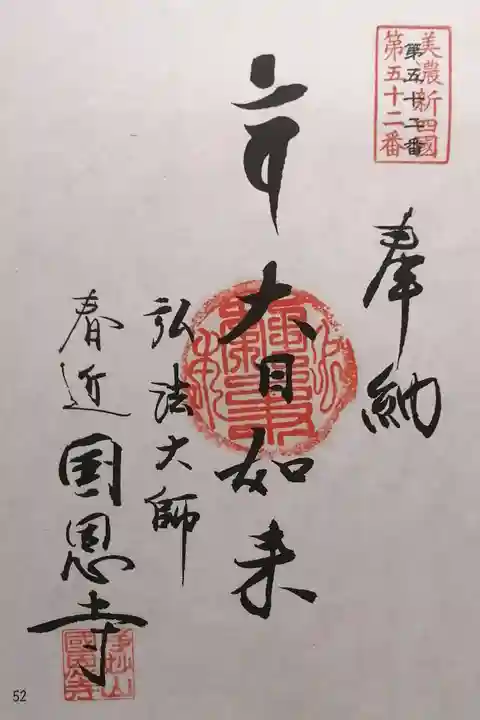 美濃新四國
第五十二番
第五十二番
奉納
大日如来
弘法大師
春近
国恩寺
國恩寺
52